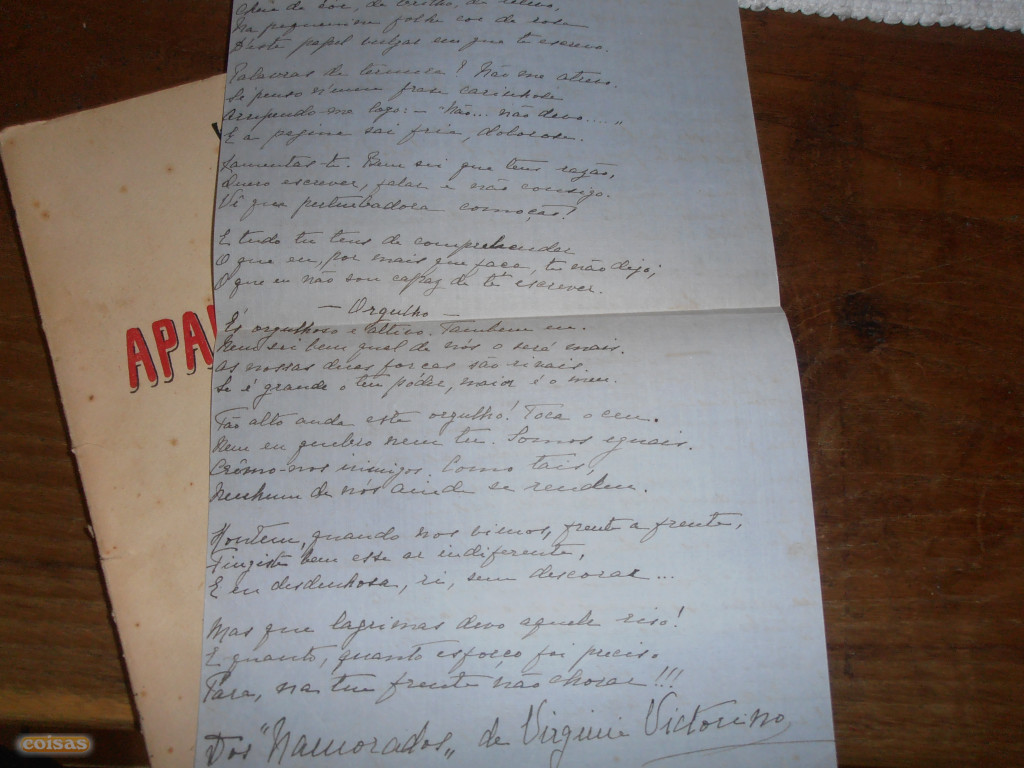 cheia de sol, de brilho, de relevo,
Na pequenina folha cor de rosa
D'este papel vulgar em que te escrevo.
Palavras de ternura? Não me atrevo.
Se penso n'uma frase carinhosa
Arrependo-me logo: — "Não... não devo....."
E a pagina sai fria, dolorosa.
Lamentas-te. Bem sei que tens razão,
Quero escrever, falar e não consigo.
Vê que perturbadora comoção!
E tudo tu tens de comprehender
O que eu, por mais que faça, te não digo;
O que eu não sou capaz de te escrever.
— Orgulho —
És orgulhoso e altivo. Tambem eu.
Nem sei bem qual de nós o será mais.
As nossas duas forças são rivais.
Se é grande o teu poder, maior é o meu.
Tão alto anda este orgulho! Toca o ceu.
Nem eu quebro nem tu. Somos eguais.
Crêmo-nos inimigos. Como tais,
Nenhum de nós ainda se rendeu.
Hontem, quando nos vimos, frente a frente,
Fingiste bem esse ar indiferente,
E eu desdenhosa, ri, sem descorar...
Mas que lagrimas devo aquele riso!
E quanto, quanto esforço foi preciso
Para, na tua frente não chorar!!!
Dos "Namorados" de Virginia Victorino
APA
coisas